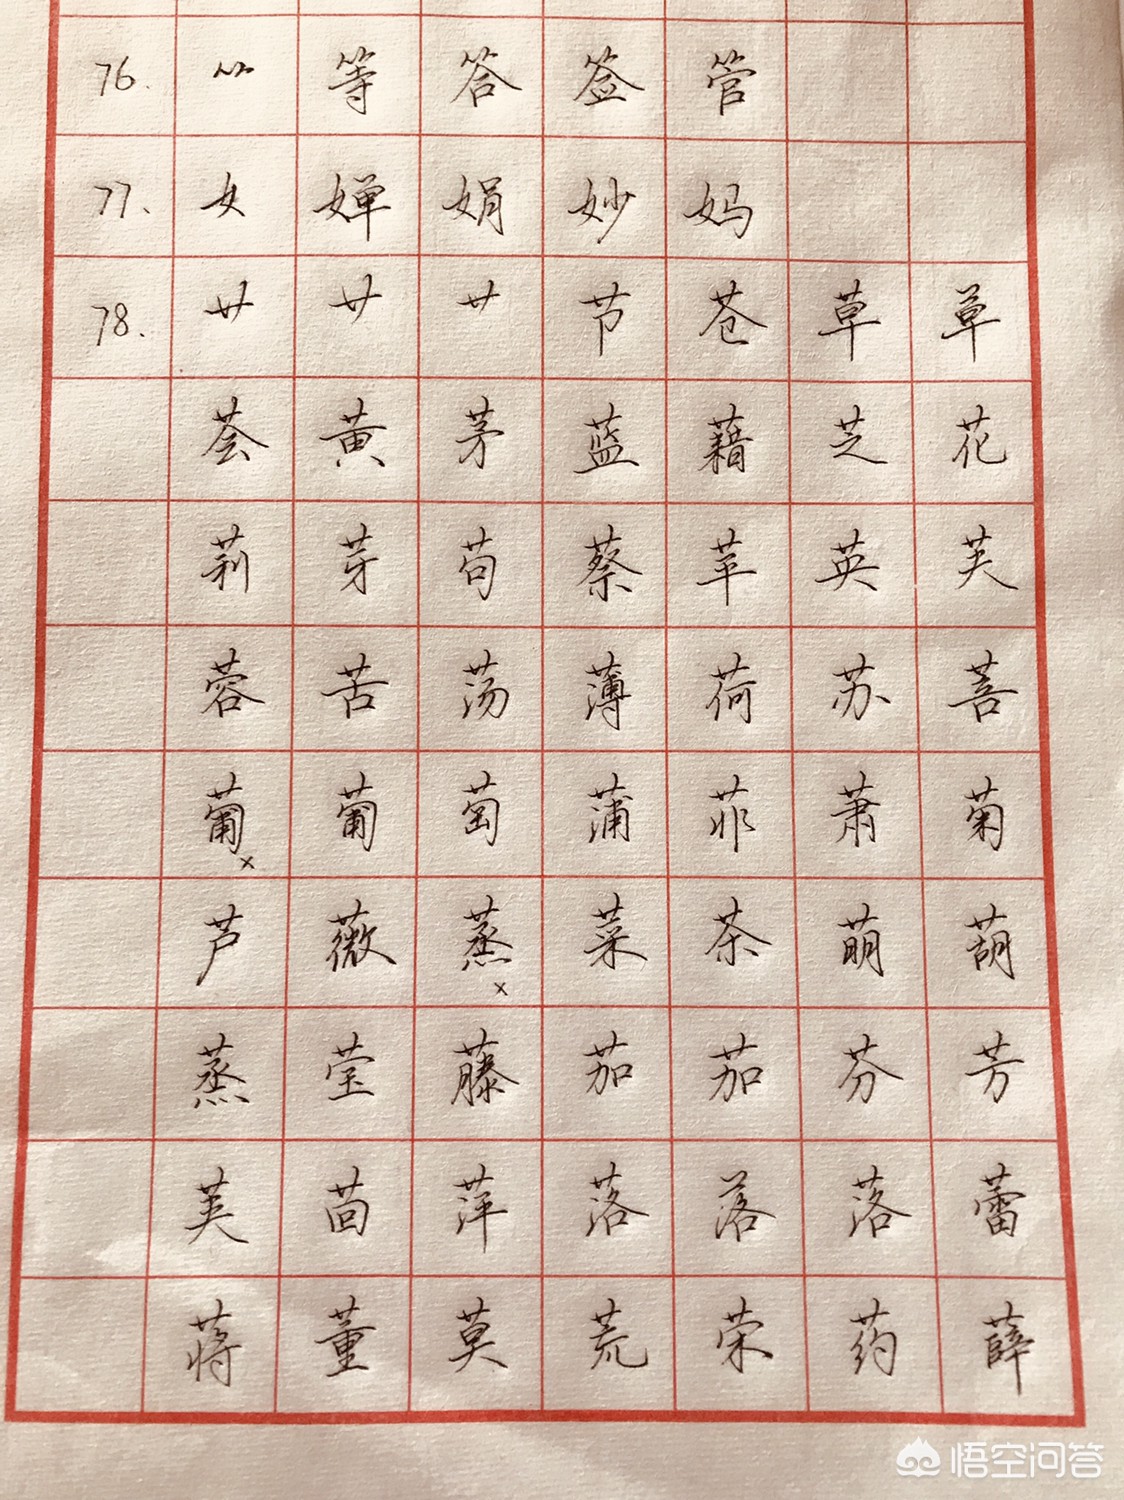 76. ⺮ 等 答 签 管
77. 女 婵 娟 妙 妈
78. 艹 艹 艹 节 苍 草 草
荟 黄 茅 蓝 藉 芝 花
莉 芽 苟 蔡 苹 英 芙
蓉 苦 荡 薄 荷 苏 菩
葡 × 葡 萄 蒲 菲 萧 菊
芦 薇 蒸 × 菜 茶 萌 葫
蒸 莹 藤 茄 茄 芬 芳
芙 茴 萍 落 落 落 蕾
蒋 董 莫 荒 荣 药 薛
悟空问答